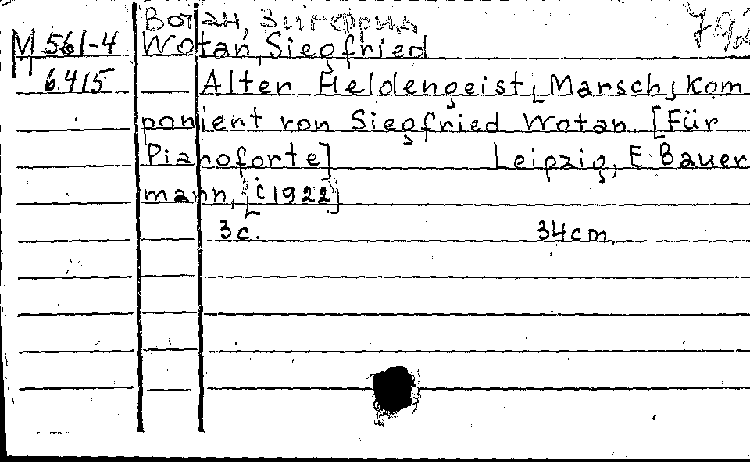 Вотан, Зигфрид
M 561-4 Wotan, Siegfried
6415 Alter Heldengeist [Marsch] Kom
poniert von Siegfried Wotan. [Für
Pianoforte] Leipzig, E. Bauer
mann, [c 1922]
3 c. 34 cm.